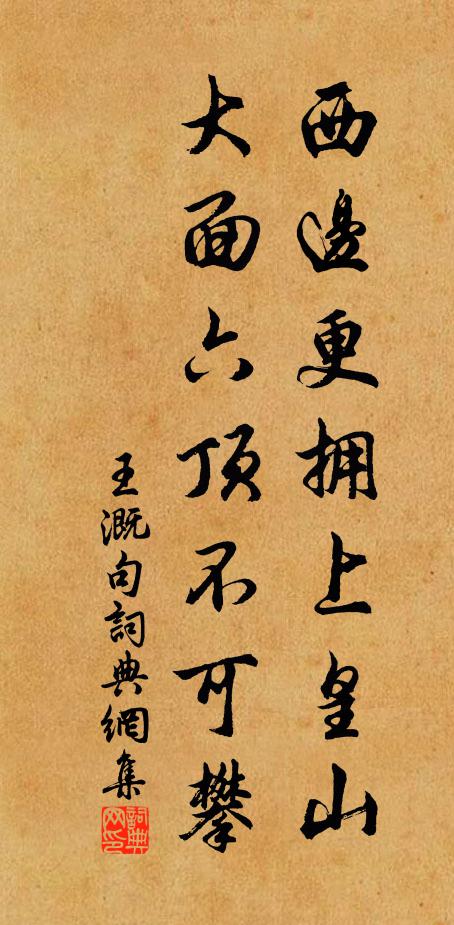 西邊更拥上皇山
大面六顶不可攀
王溉句詞典網集
詞典网印